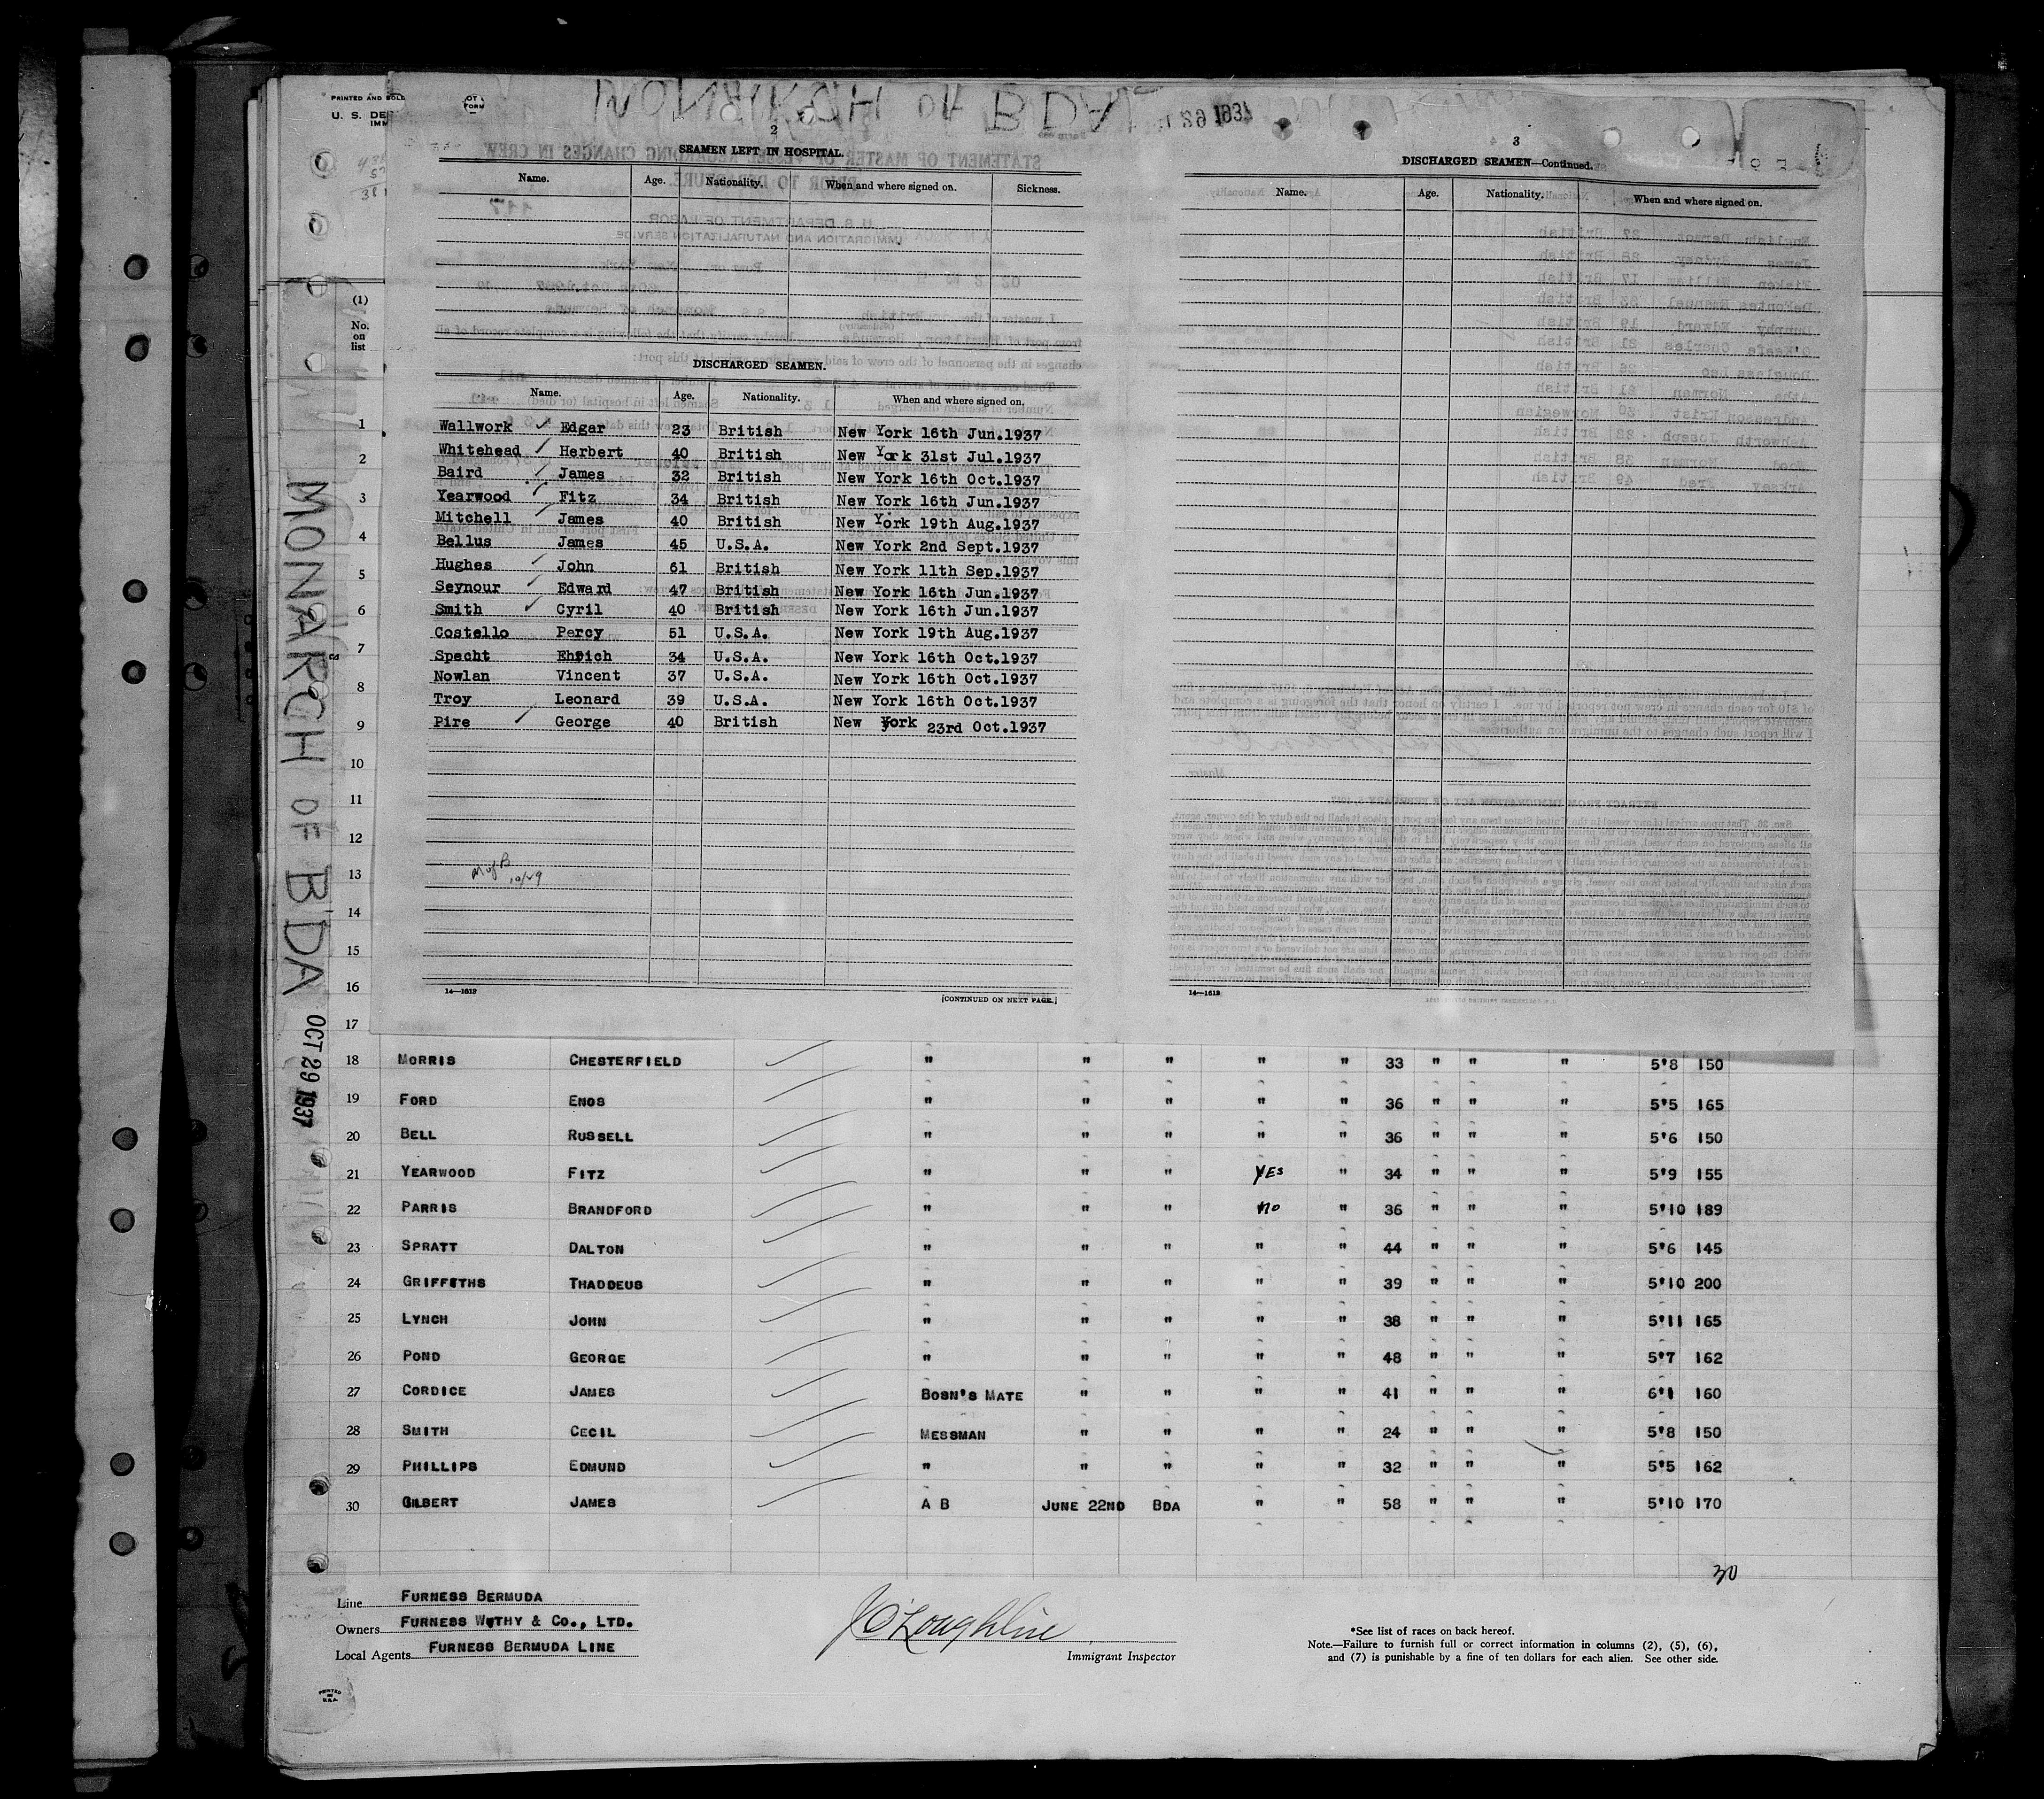 PRINTED AND SOLD
U. S. DE
IMM
MONARCH OF BDA
29 1937
2
SEAMEN LEFT IN HOSPITAL.
Name. Age. Nationality. When and where signed on. Sickness.
DISCHARGED SEAMEN.
Name. Age. Nationality. When and where signed on.
Wallwork Edgar 23 British New York 16th Jun.1937
Whitehead Herbert 40 British New York 31st Jul.1937
Baird James 32 British New York 16th Oct.1937
Yearwood Fitz 34 British New York 16th Jun.1937
Mitchell James 40 British New York 19th Aug.1937
Bellus James 45 U.S.A. New York 2nd Sept.1937
Hughes John 61 British New York 11th Sep.1937
Seynour Edward 47 British New York 16th Jun.1937
Smith Cyril 40 British New York 16th Jun.1937
Costello Percy 51 U.S.A. New York 19th Aug.1937
Specht Ehrich 34 U.S.A. New York 16th Oct.1937
Nowlan Vincent 37 U.S.A. New York 16th Oct.1937
Troy Leonard 39 U.S.A. New York 16th Oct.1937
Pire George 40 British New York 23rd Oct.1937
10/29
14—1613
[CONTINUED ON NEXT PAGE.]
3
DISCHARGED SEAMEN—Continued.
Name. Age. Nationality. When and where signed on.
14—1613
(1)
No.
on
list
1
2
3
4
5
6
7
8
9
10
11
12
13
14
15
16
17
18 MORRIS CHESTERFIELD " " " " " 33 " " " 5'8 150
19 FORD ENOS " " " " " 36 " " " 5'5 165
20 BELL RUSSELL " " " " " 36 " " " 5'6 150
21 YEARWOOD FITZ " " " YES " 34 " " " 5'9 155
22 PARRIS BRANDFORD " " " no " 36 " " " 5'10 189
23 SPRATT DALTON " " " " " 44 " " " 5'6 145
24 GRIFFITHS THADDEUS " " " " " 39 " " " 5'10 200
25 LYNCH JOHN " " " " " 38 " " " 5'11 165
26 POND GEORGE " " " " " 48 " " " 5'7 162
27 CORDICE JAMES BOSN'S MATE " " " " 41 " " " 6'1 160
28 SMITH CECIL MESSMAN " " " " 24 " " " 5'8 150
29 PHILLIPS EDMUND " " " " " 32 " " " 5'5 162
30 GILBERT JAMES A B JUNE 22ND BDA " " 58 " " " 5'10 170
30
Line FURNESS BERMUDA
Owners FURNESS WITHY & CO., LTD.
Local Agents FURNESS BERMUDA LINE
J O'Loughlin
Immigrant Inspector
*See list of races on back hereof.
Note.—Failure to furnish full or correct information in columns (2), (5), (6),
and (7) is punishable by a fine of ten dollars for each alien. See other side.
PRINTED
IN
U.S.A.
MONARCH OF BDA OCT 29 1937